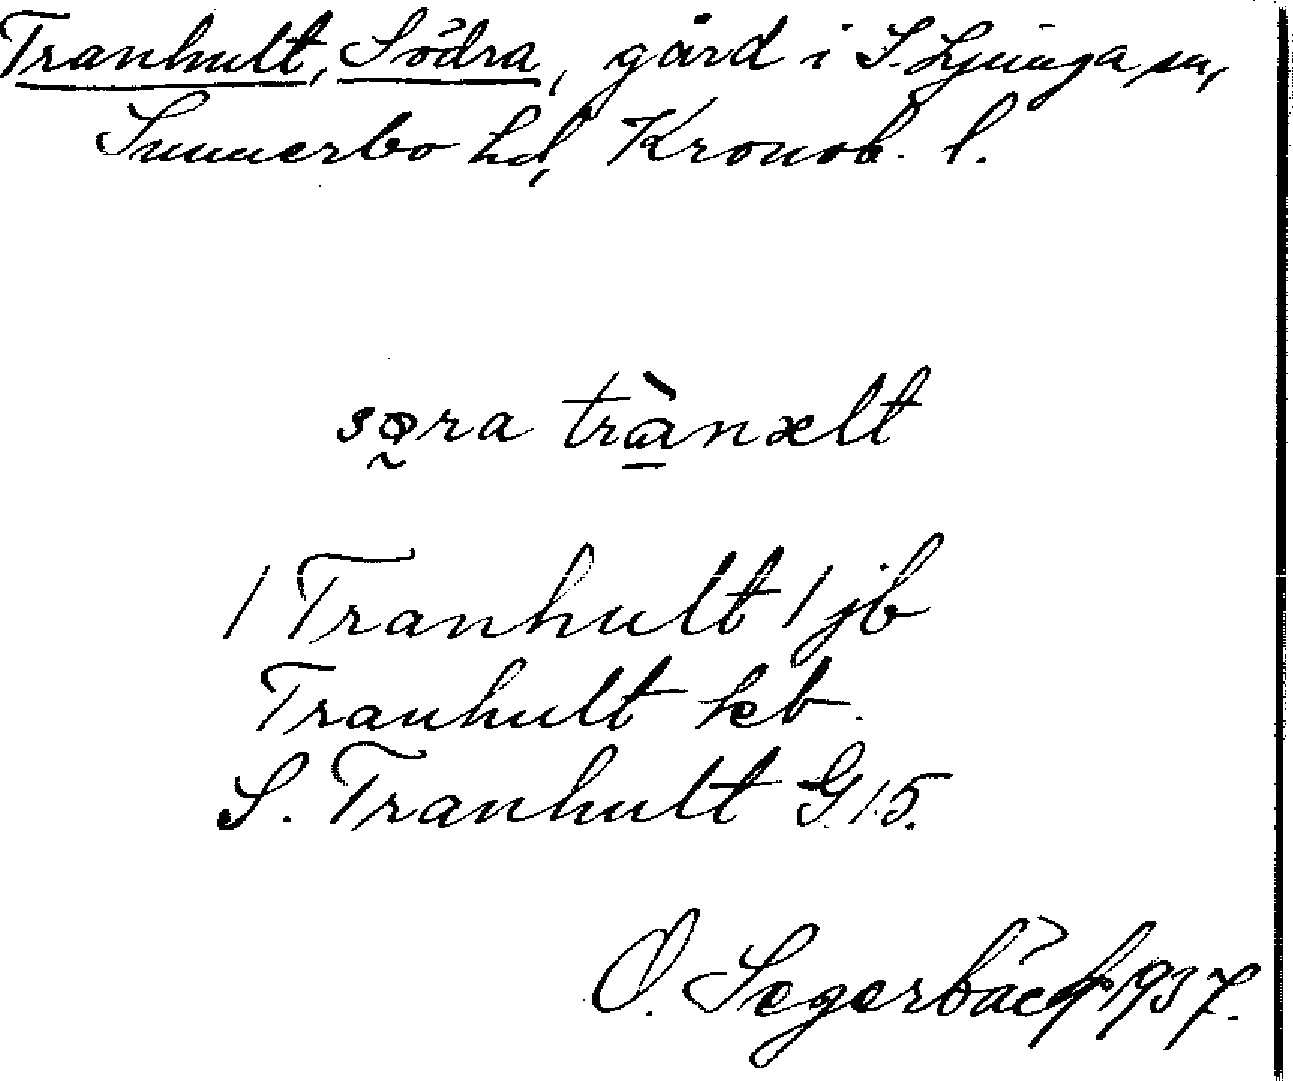 Tranhult, Södra, gård i S. Ljunga sn,
Sunnerbo hd, Kronob. l.
sø̰ra trà̱nælt
/ Tranhult / jb
Tranhult hb.
S. Tranhult G.15.
O. Segerbäck 1937.